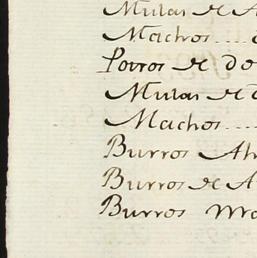 Mulas de A
Machos ....
Potros de de
Mulas de
Machos ....
Burros
Burros de A
Burros